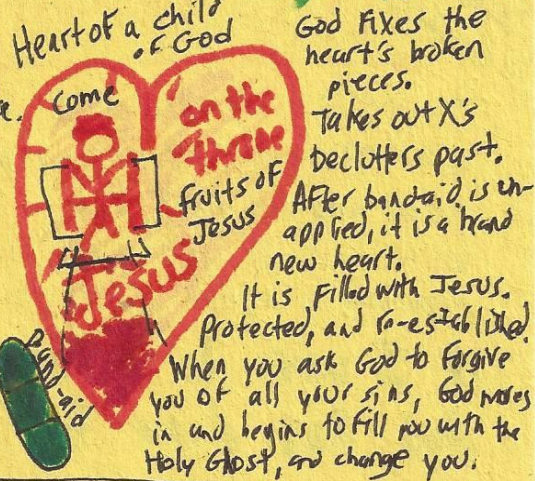 Heart of a child
of God
Come
on the
throne
fruits of
Jesus
Jesus
Band-aid
God fixes the
heart's broken
pieces.
Takes out X's
Declutters past.
After bandaid is un-
applied, it is a brand
new heart.
It is filled with Jesus.
Protected, and re-established.
When you ask God to forgive
you of all your sins, God moves
in and begins to fill you with the
Holy Ghost, and change you.